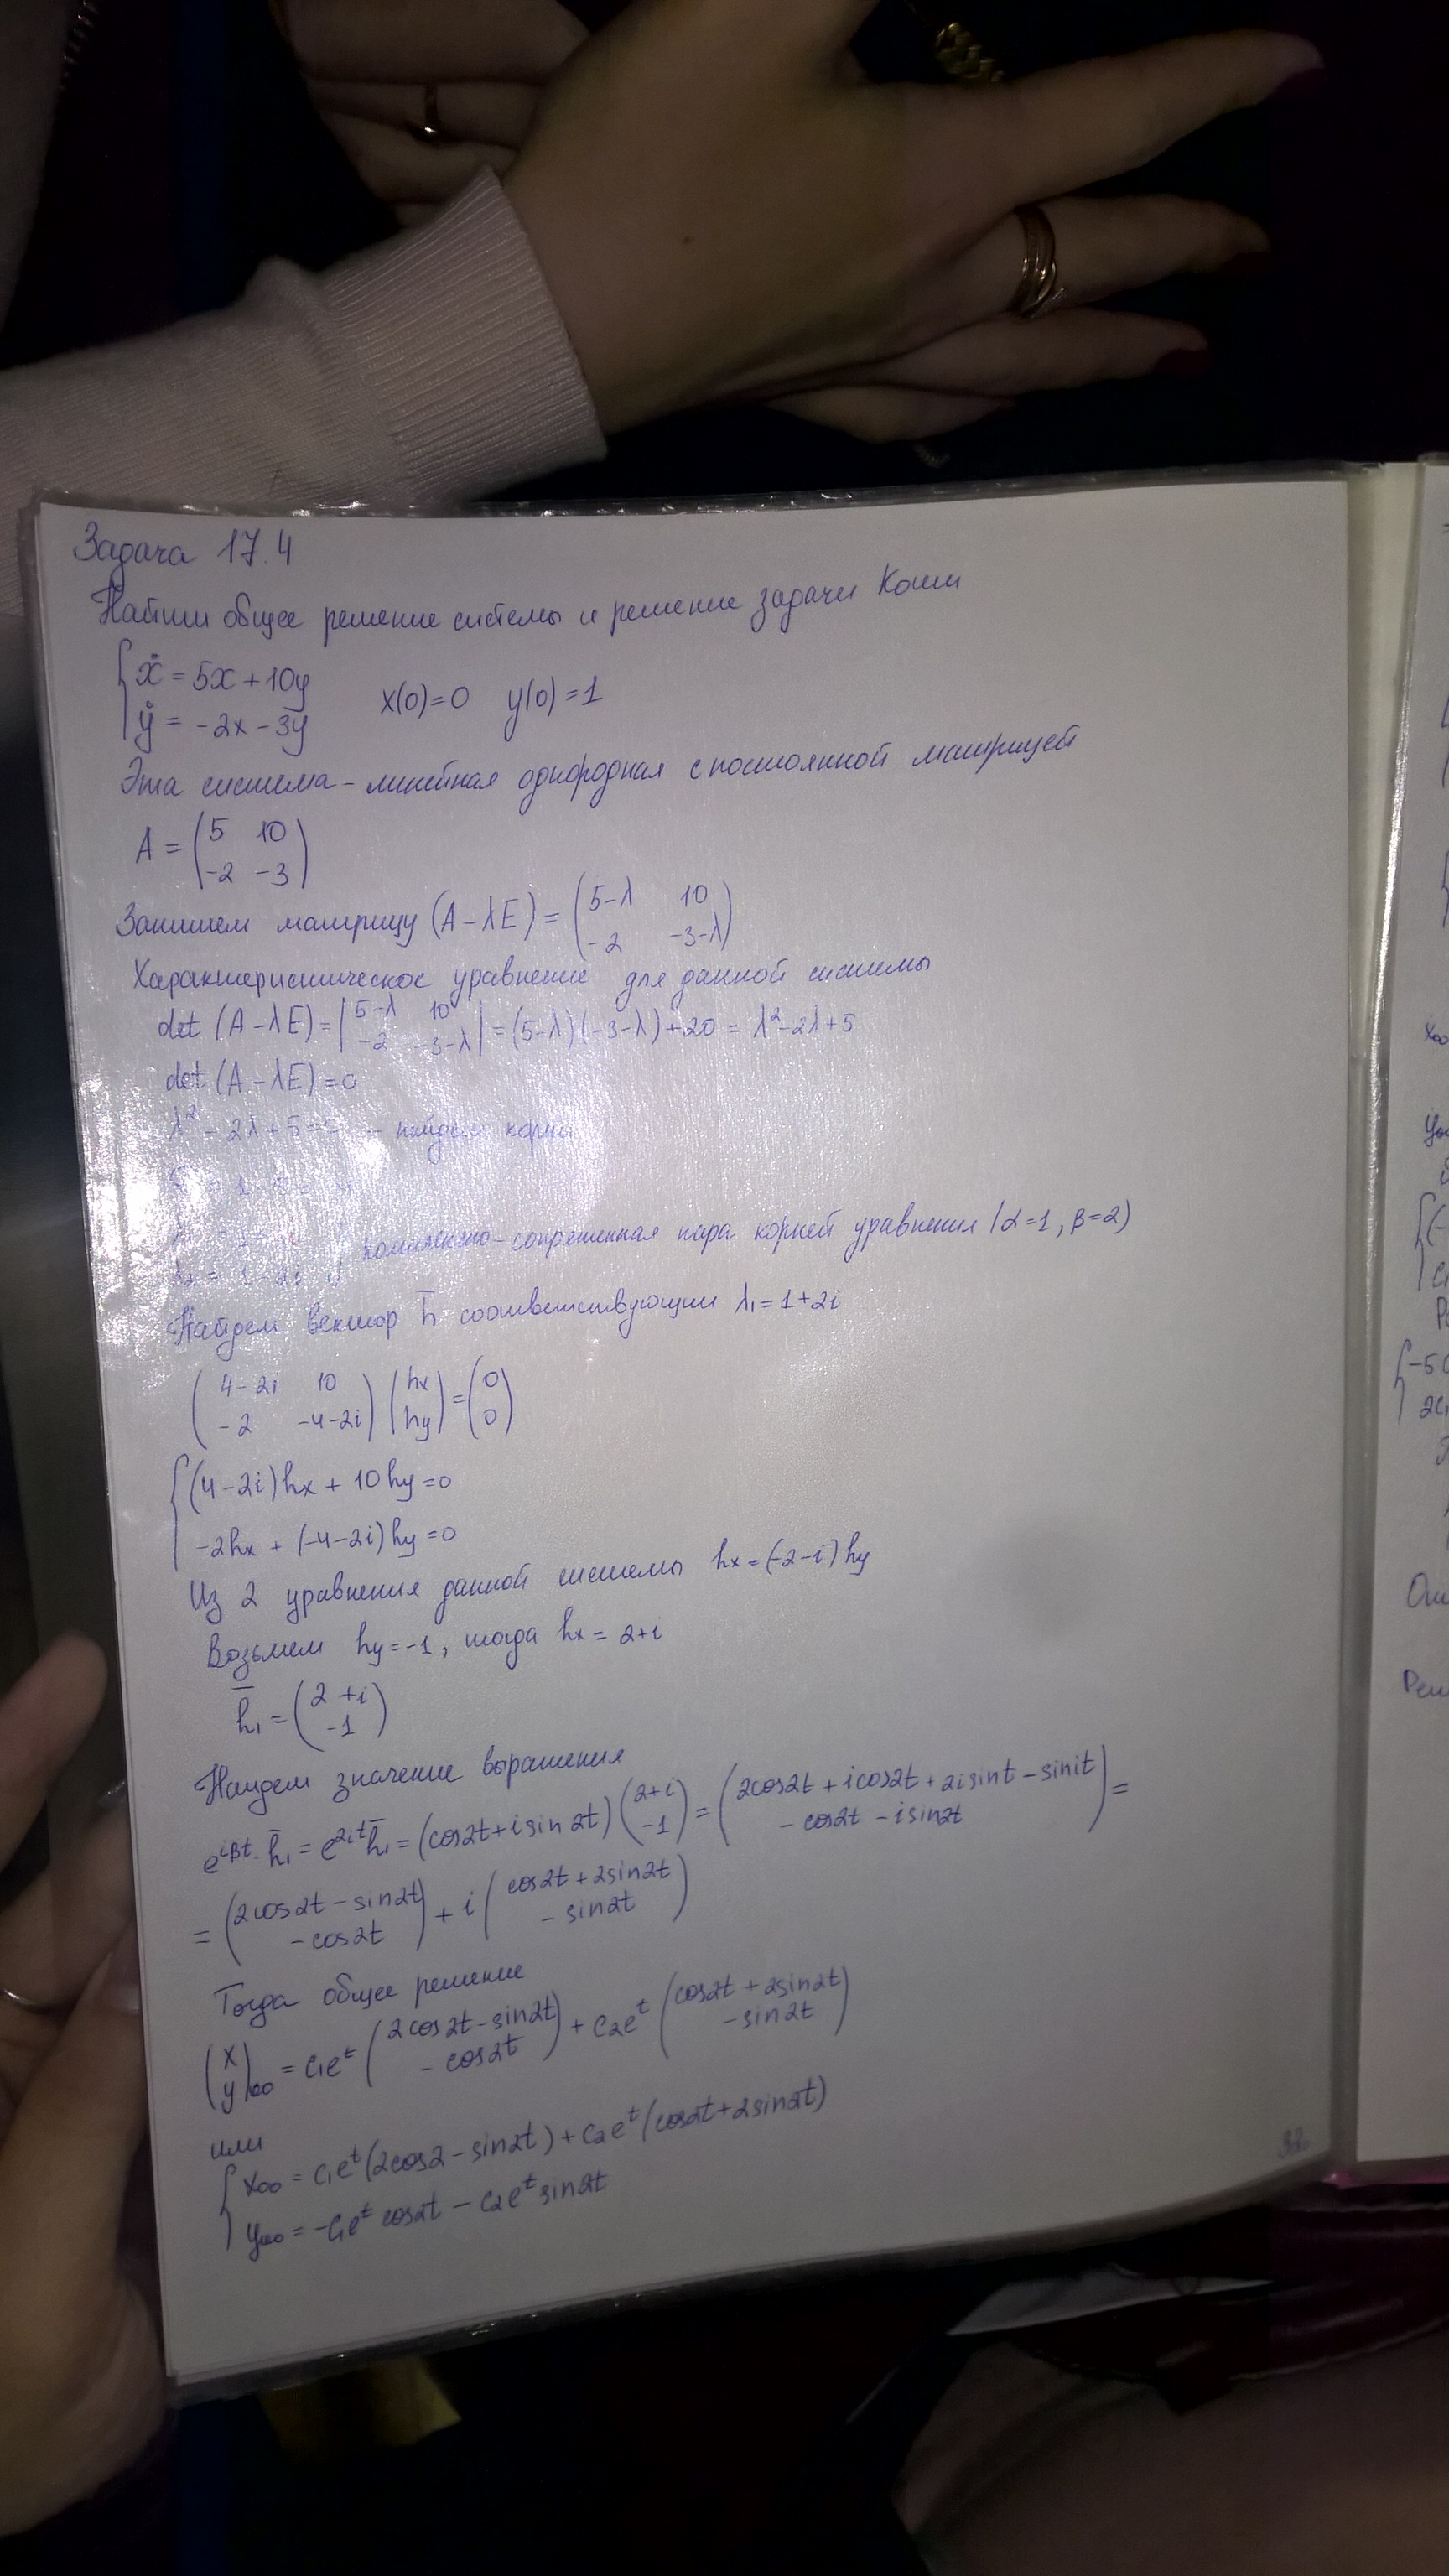 Задача 17.4
Найти общее решение системы и решение задачи Коши
{ ẋ = 5x + 10y
{ ẏ = -2x - 3y
x(0)=0 y(0)=1
Эта система - линейная однородная с постоянной матрицей
A = (5 10
-2 -3)
Запишем матрицу (A - λE) = (5-λ 10
-2 -3-λ)
Характеристическое уравнение для данной системы
det (A - λE) = |5-λ 10
-2 -3-λ| = (5-λ)(-3-λ)+20 = λ²-2λ+5
det (A - λE) = 0
λ² - 2λ + 5 = 0 - найдем корни
λ₂ = 1-2i } комплексно-сопряженная пара корней уравнения (α=1, β=2)
Найдем вектор h̅ соответствующий λ₁ = 1+2i
(4-2i 10
-2 -4-2i) (hx
hy) = (0
0)
{ (4-2i)hx + 10hy = 0
{ -2hx + (-4-2i)hy = 0
Из 2 уравнения данной системы hx = (-2-i)hy
Возьмем hy = -1, тогда hx = 2+i
h̅₁ = (2+i
-1)
Найдем значение выражения
e^iβt · h̅₁ = e^2it h̅₁ = (cos2t + i sin 2t) (2+i
-1) = (2cos2t + icos2t + 2isint - sinit
- cos2t - isin2t) =
= (2cos2t - sin2t
- cos2t) + i (cos2t + 2sin2t
- sin2t)
Тогда общее решение
(x
y)оо = c₁e^t (2cos2t - sin2t
- cos2t) + c₂e^t (cos2t + 2sin2t
- sin2t)
или
{ xоо = c₁e^t (2cos2 - sin2t) + c₂e^t (cos2t + 2sin2t)
{ yоо = -c₁e^t cos2t - c₂e^t sin2t